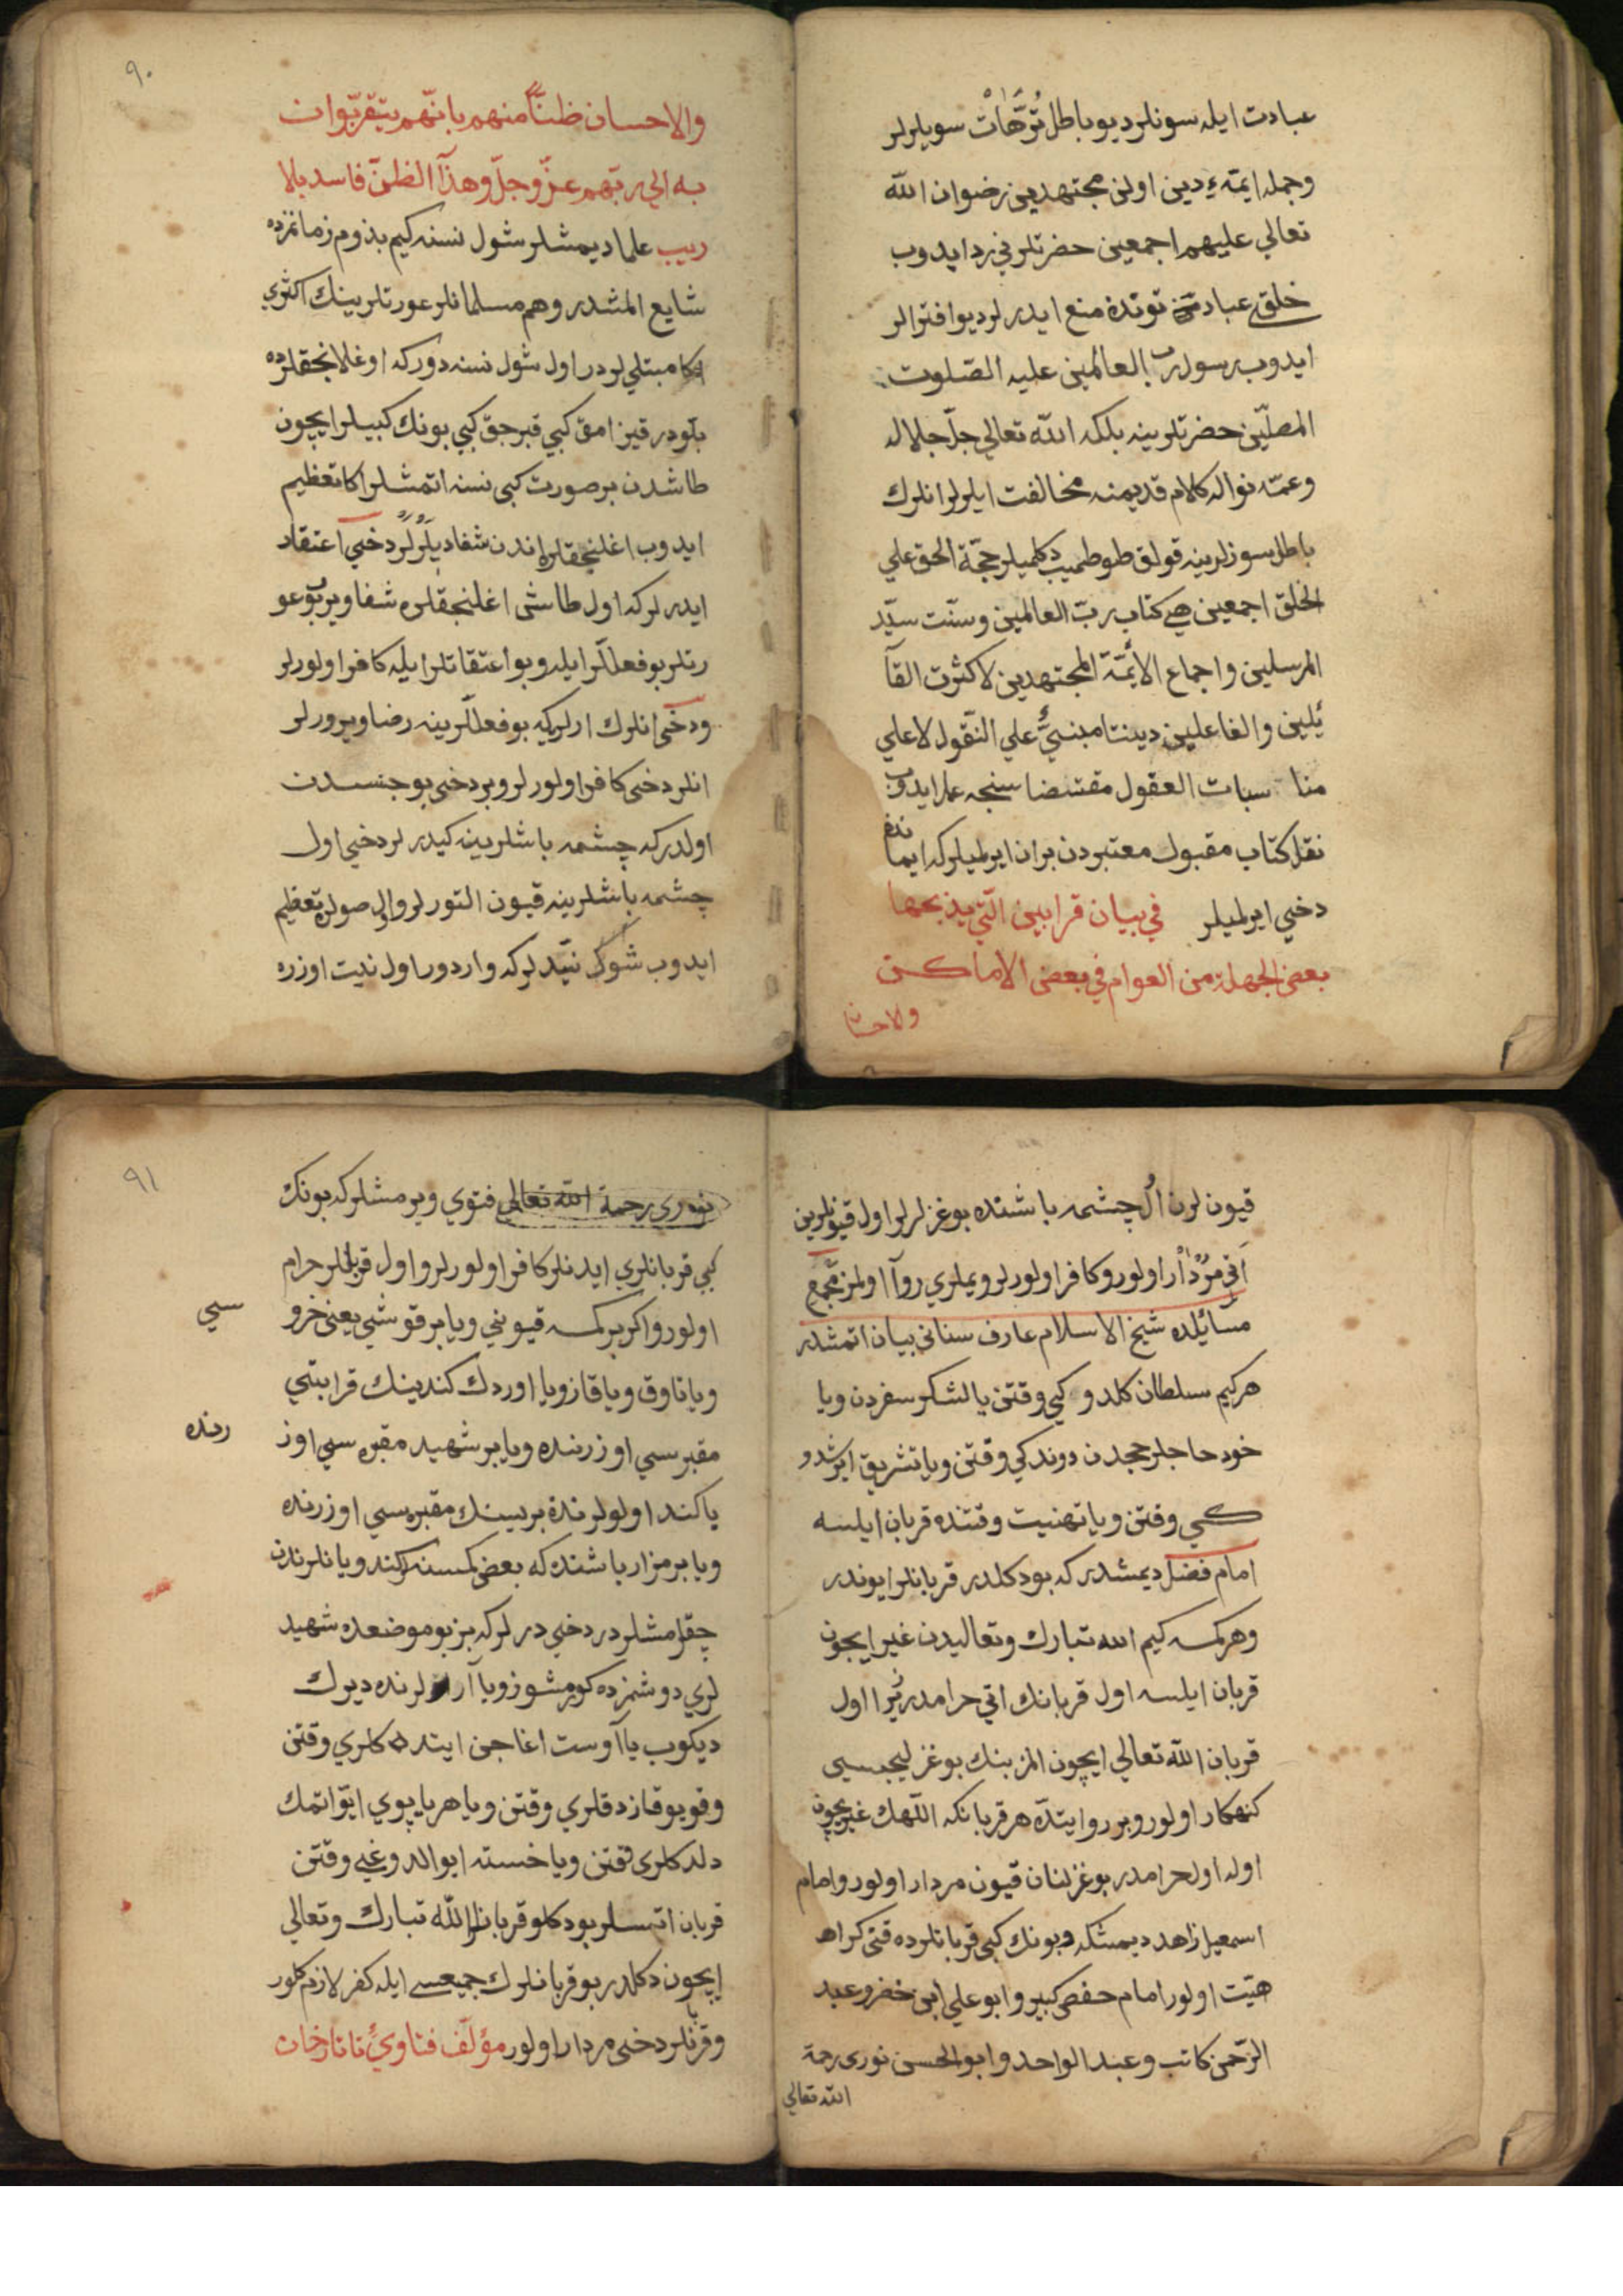 عبادت ايله سونلر ديو باطل تُرَّهَاتْ سويلرلر
وجمله ايمّهء دين اولن مجتهدين رضوان الله
تعالي عليهم اجمعين حضرتلرني رد ايدوب
خلقي عبادت توتدە منع ايدرلر ديو افترالر
ايدوب رسول ربّ العالمين عليه الصّلوت
المصلّين حضرتلرينه بلكه الله تعالي جلّ جلاله
وعمّه نواله كلام قديمنه مخالفت ايلرلر انلرك
باطل سوزلرينه قولق طوطميب دكلميلر حجّة الحق علي
الخلق اجمعين هي كتاب ربّ العالمين وسنّت سيّد
المرسلين واجماع الايمّة المجتهدين لا كثرت القآ
ئلين والفاعلين ديننا مبنيٌّ علي النّقول لا علي
مناسبات العقول مقتضاسنجه عمل ايدوب
نقل كتاب مقبول معتبردن بران ايرلميلر كه ايماندن
دخي ايرلميلر في بيان قرابين الّتي يذبحها
بعض الجهلة من العوام في بعض الاماكن
والاحسا
٩٠
والاحسان ظنّاً منهم بانّهم يتقرّبوان
به الي ربّهم عزّ وجلّ وهذآ الظنّ فاسد بلا
ريب علما ديمشلر شول نسنه كيم بذوم زمانمزده
شايع المشدر وهم مسلمانلر عورتلرينك اكثري
اكا مبتلي لردر اول شول نسنه دور كه اوغلانجقلرده
بلّودر قيزامق كبي قبرجق كبي بونك كبيلر ايچون
طاشدن بر صورت كبي نسنه اتمشلر اكا تعظيم
ايدوب اغلنجقلره اندن شفا ديلَرْلَرْ دخي اعتقاد
ايدرلر كه اول طاشى اغلنجقلره شفا ويرب بو عو
رتلر بو فعللّر ايله وبو اعتقاتلر ايله كافر اولورلر
ودخي انلرك ارلريكه بو فعللّرينه رضا ويرورلر
انلر دخي كافر اولورلر وبر دخي بو جنسدن
اولدر كه چشمه باشلرينه كيدرلر دخي اول
چشمه باشلرينه قيون التورلر واول صولره تعظيم
ايدوب شوكا نيّدلر كه واردور اول نيت اوزره
قيون لرن اُلْ چشمه باشنده بوغزلرلر اول قيونلرين
اَتي مُرْدَاْر اولور وكافر اولورلر ويملري روآ اولمز مجمع
مسائيلده شيخ الاسلام عارف سناني بيان اتمشدر
هر كيم سلطان كلدوكي وقتن يا لشكر سفردن ويا
خود حاجلر حجدن دوندكي وقتن ويا تشريق ايرشدو
كي وقتن ويا تهنيت وقتنده قربان ايلسه
امام فضل ديمشدر كه بو دكلدر قربانلر ايوندر
وهر كمسه كيم الله تبارك وتعاليدن غير ايچون
قربان ايلسه اول قربانك اتي حرامدر زيرا اول
قربان الله تعالي ايچون المز بنك بوغزليجيسى
كنهكار اولور وبر روايتده هر قربانكه اللّهك غير ايچون
اوله اول حرامدر بوغزلنان قيون مردار اولور وامام
اسمعيل زاهد ديمشكه وبونك كبي قربانلرده قتي كراه
هيّت اولور امام حفص كبير وابو علي ابن خضر وعبد
الرّحمن كاتب وعبد الواحد وابو الحسن نورى رحمة
الله تعالي
٩١
نورى رحمة الله تعالي فتوي ويرمشلر كه بونك
كبي قربانلري ايدنلر كافر اولورلر واول قربانلر حرام
اولور واكر بر كمسه قيونني ويا بر قوشني يعني خرو
سي
ويا تاوق ويا قاز ويا اوردك كندينك قرابتي
مقبرسي اوزرنده ويا بر شهيد مقبره سي اوز
رنده
يا كند اولولرندة برسينك مقبره سي اوزرنده
ويا بر مزار باشنده كه بعض كمسنه لر كند ويانلرندن
چقرمشلردر دخي درلر كه بز بو موضعده شهيد
لري دوشمزده كورمشوز ويا آرا لرنده ديرك
ديكوب يا آوست اغاجن ايتدكلري وقتن
وقويو قازدقلري وقتن ويا هر ياپوي ايّو اتمك
دلدكلرى وقتن ويا خسته ايو الدوغي وقتن
قربان اتسلر بو دكلو قربانلر الله تبارك وتعالي
ايچون دكلدر بو قربانلرك جميعسي ايله كفر لازم كلور
وقربانلر دخي مردار اولور مؤلّف فتاويُ تاتارخان